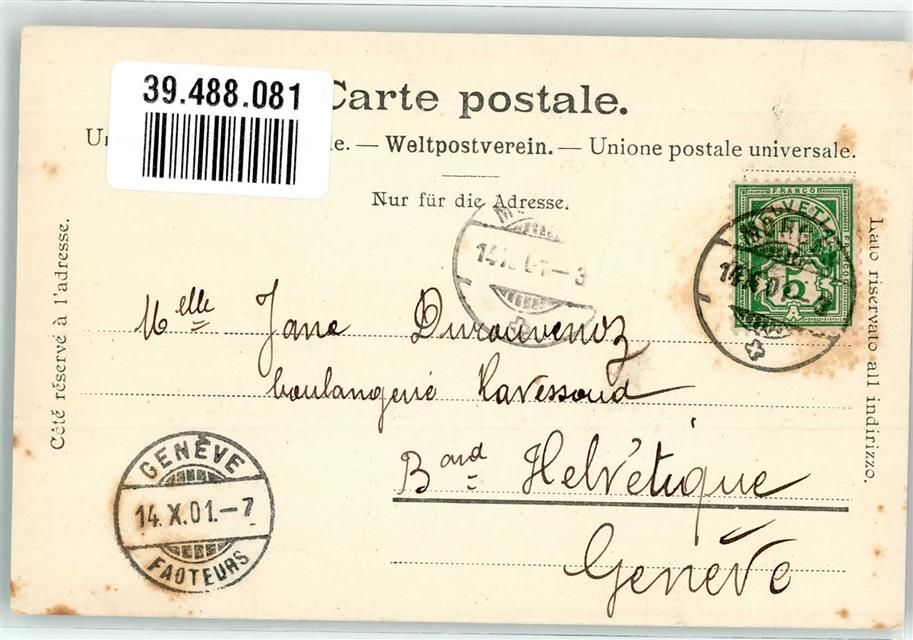 39.488.081
Carte postale.
e. — Weltpostverein. — Unione postale universale.
Nur für die Adresse.
Côté réservé à l'adresse.
Lato riservato all indirizzo.
FRANCO
HELVETIA
5
14.X.01.-3
14.X.01-3
Melle Jane
boulangerie Ravessoud
Bard Helvétique
Genève
GENÈVE
14.X.01.-7
FACTEURS